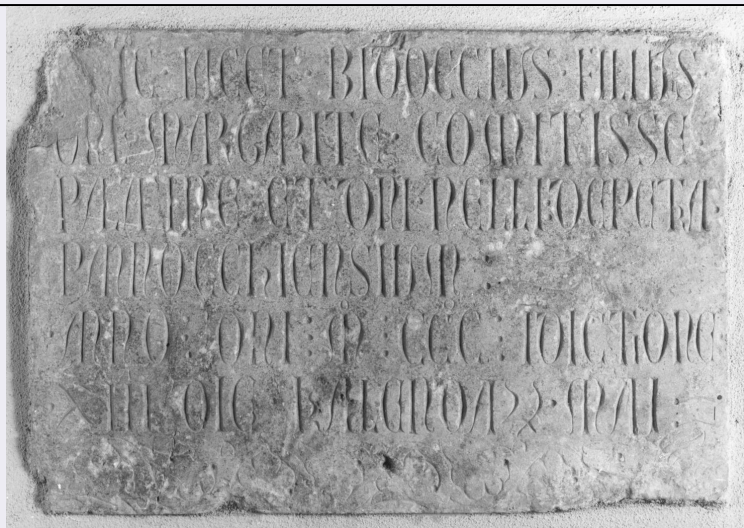 IC IACET BINDOCCIUS FILIUS
DNE MARGARITE COMITISSE
PALATINE ET DNI NELLI DE PETRA
PANNOCCHIENSIUM
ANNO : DNI : M : CCC : INDICTIONE
XIII DIE KALENDAS MAII :